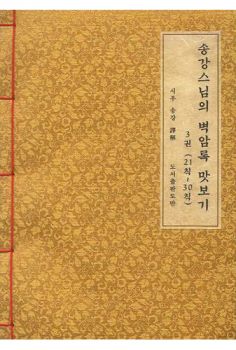 송강스님의 벽암록 맛보기
3권 (21칙~30칙)
시우 송강 譯解
도서출판도반